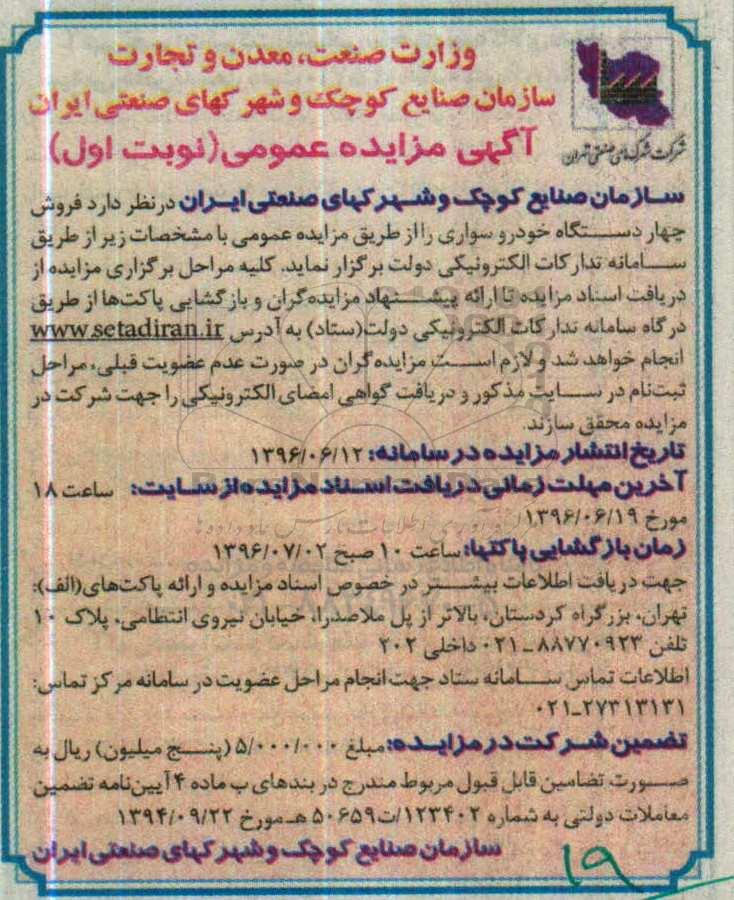 وزارت صنعت، معدن و تجارت
سازمان صنایع کوچک و شهرکهای صنعتی ایران
آگهی مزایده عمومی(نوبت اول)
شرکت شهرکهای صنعتی تهران
سازمان صنایع کوچک و شهرکهای صنعتی ایران درنظر دارد فروش
چهار دستگاه خودرو سواری را از طریق مزایده عمومی با مشخصات زیر از طریق
سامانه تدارکات الکترونیکی دولت برگزار نماید. کلیه مراحل برگزاری مزایده از
دریافت اسناد مزایده تا ارائه پیشنهاد مزایده‌گران و بازگشایی پاکت‌ها از طریق
درگاه سامانه تدارکات الکترونیکی دولت(ستاد) به آدرس www.setadiran.ir
انجام خواهد شد و لازم است مزایده‌گران در صورت عدم عضویت قبلی، مراحل
ثبت‌نام در سایت مذکور و دریافت گواهی امضای الکترونیکی را جهت شرکت در
مزایده محقق سازند.
تاریخ انتشار مزایده در سامانه: ۱۳۹۶/۰۶/۱۲
آخرین مهلت زمانی دریافت اسناد مزایده از سایت: ساعت ۱۸
مورخ ۱۳۹۶/۰۶/۱۹
زمان بازگشایی پاکتها: ساعت ۱۰ صبح ۱۳۹۶/۰۷/۰۲
جهت دریافت اطلاعات بیشتر در خصوص اسناد مزایده و ارائه پاکت‌های(الف):
تهران، بزرگراه کردستان، بالاتر از پل ملاصدرا، خیابان نیروی انتظامی، پلاک ۱۰
تلفن ۸۸۷۷۰۹۲۳-۰۲۱ داخلی ۲۰۲
اطلاعات تماس سامانه ستاد جهت انجام مراحل عضویت در سامانه مرکز تماس:
۰۲۱-۲۷۳۱۳۱۳۱
تضمین شرکت در مزایده: مبلغ ۵/۰۰۰/۰۰۰ (پنج میلیون) ریال به
صورت تضامین قابل قبول مربوط مندرج در بندهای ب ماده ۴ آیین‌نامه تضمین
معاملات دولتی به شماره ۱۲۳۴۰۲/ت۵۰۶۵۹ هـ مورخ ۱۳۹۴/۰۹/۲۲
سازمان صنایع کوچک و شهرکهای صنعتی ایران
۱۹